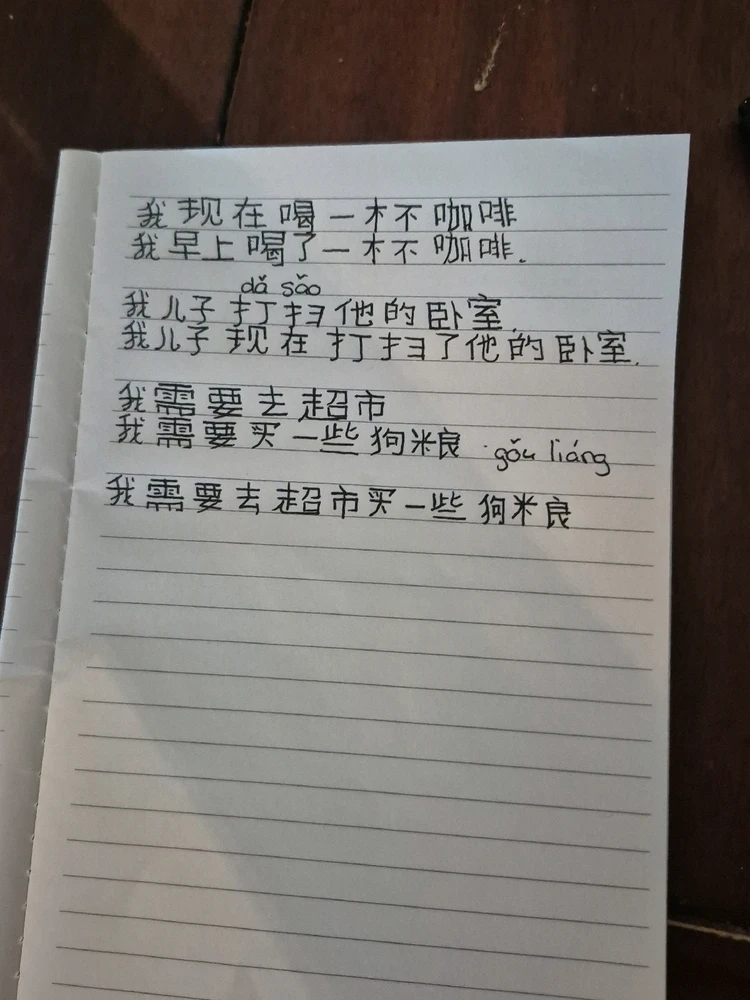 我现在喝一杯咖啡
我早上喝了一杯咖啡.
dǎ sǎo
我儿子打扫他的卧室.
我儿子现在打扫了他的卧室.
我需要去超市
我需要买一些狗粮 gǒu liáng
我需要去超市买一些狗粮